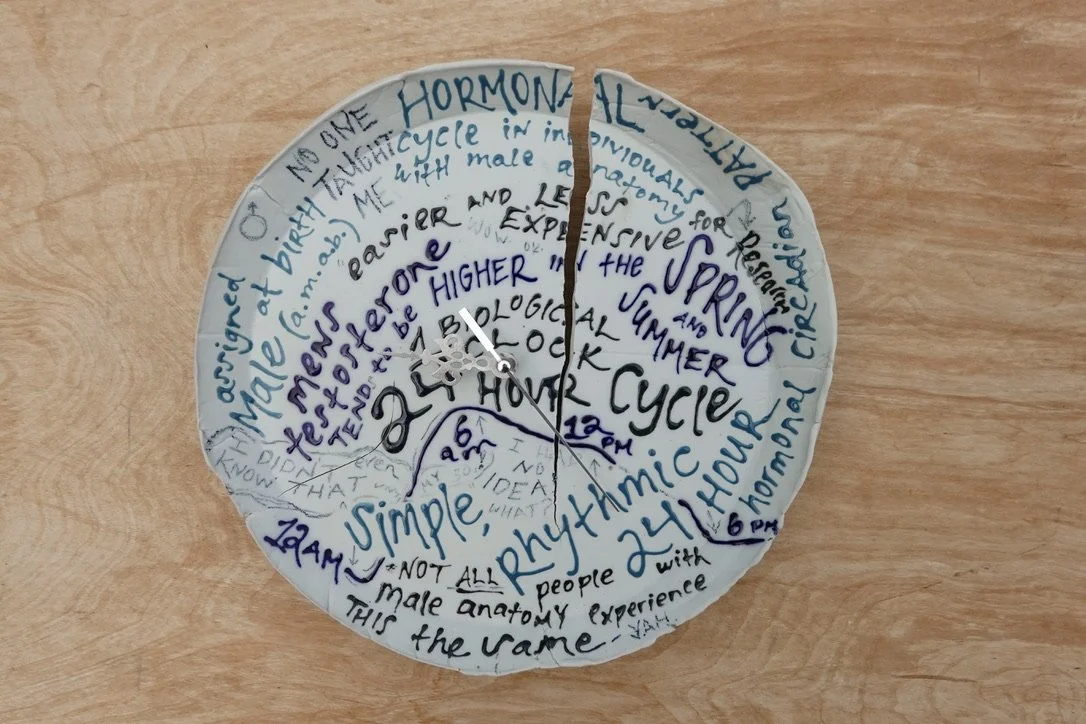 HORMONAL PATTERN
cycle in individuals
with male anatomy
NO ONE
TAUGHT
ME
♂
assigned
Male at birth
(a.m.ab.)
easier AND LESS
EXPENSIVE for Research
WOW OK
mens
testosterone
TENDS to be HIGHER in the SPRING
AND
SUMMER
BIOLOGICAL
CLOCK
24 HOUR Cycle
6
am
12
PM
I DIDN'T even
KNOW THAT
I HAD
NO
IDEA
WHAT?
simple,
Rhythmic
24 HOUR
hormonal CIRCADian
6 PM
12AM
*NOT ALL people with
male anatomy experience
THIS the same - YAH.